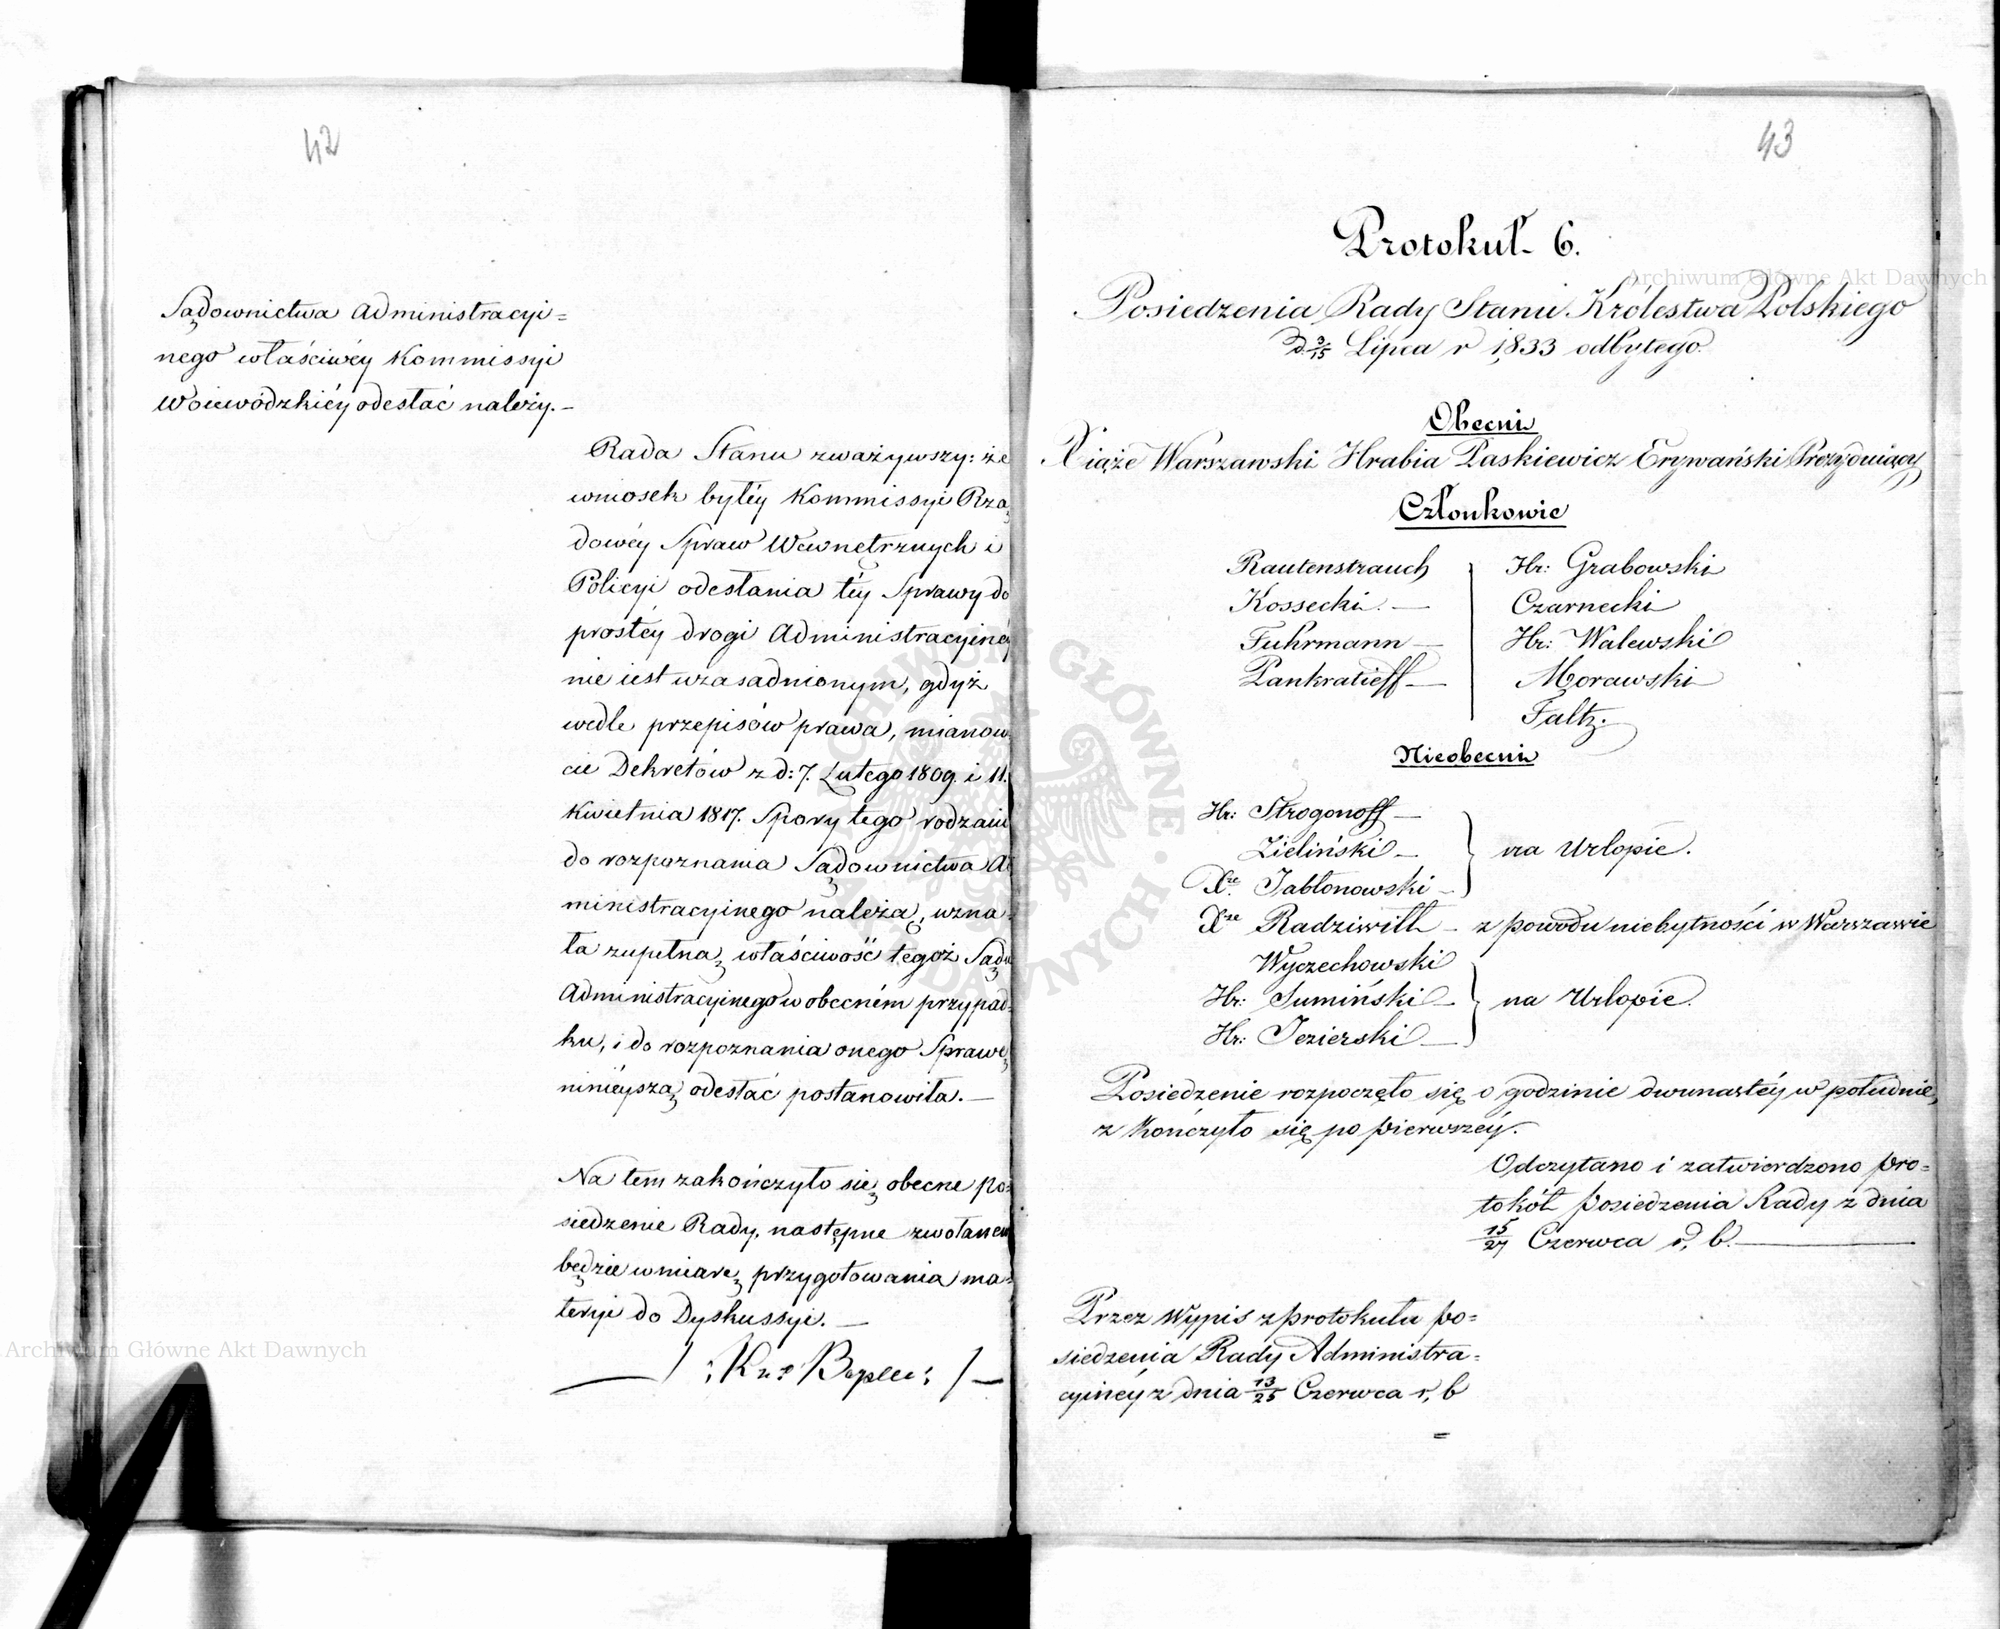 42
Sądownictwa Administracyi=
nego właściwéy Kommissyi
Woiewódzkiéy odesłać należy.—
Rada Stanu zważywszy: że
wniosek byłéy Kommissyi Rzą
dowéy Spraw Wewnętrznych i
Policyi odesłania téy Sprawy do
prostéy drogi Administracyinéy
nie iest uzasadnionym, gdyż
wedle przepisów prawa, mianowi
cie Dekretów z d: 7. Lutego 1809. i 11.
Kwietnia 1817. Spory tego rodzaiu
do rozpoznania Sądownictwa Ad
ministracyinego należą, uzna=
ła zupełną właściwość tegoż Sądu
Administracyinego w obecném przypad=
ku, i do rozpoznania onego Sprawę
niniéyszą odesłać postanowiła.—
Na tem zakończyło się obecne po=
siedzenie Rady, następne zwołanem
będzie w miarę przygotowania ma=
teryi do Dyskussyi.—
43
Protokuł 6.
Posiedzenia Rady Stanu Królestwa Polskiego
d. 3/15 Lipca r 1833 odbytego.
Obecni
Xiąże Warszawski Hrabia Paskiewicz Erywański Prezyduiący
Członkowie
Rautenstrauch Hr: Grabowski
Kossecki.— Czarnecki
Fuhrmann— Hr: Walewski
Pankratieff— Morawski
Faltz.
Nieobecni
Hr: Strogonoff—
Zieliński— na Urlopie.
Xże Jabłonowski—
Xże Radziwiłł— z powodu niebytności w Warszawie
Wyczechowski
Hr: Sumiński— na Urlopie.
Hr: Jezierski—
Posiedzenie rozpoczęło się o godzinie dwunastéy w południe,
z kończyło się po pierwszéy.
Odczytano i zatwierdzono pro=
tokół posiedzenia Rady z dnia
15/27 Czerwca r, b.—
Przez Wypis z protokułu po=
siedzenia Rady Administra=
cyinéy z dnia 13/25 Czerwca r, b
=
Archiwum Główne Akt Dawnych
Archiwum Główne Akt Dawnych
ARCHIWUM GŁÓWNE AKT DAWNYCH